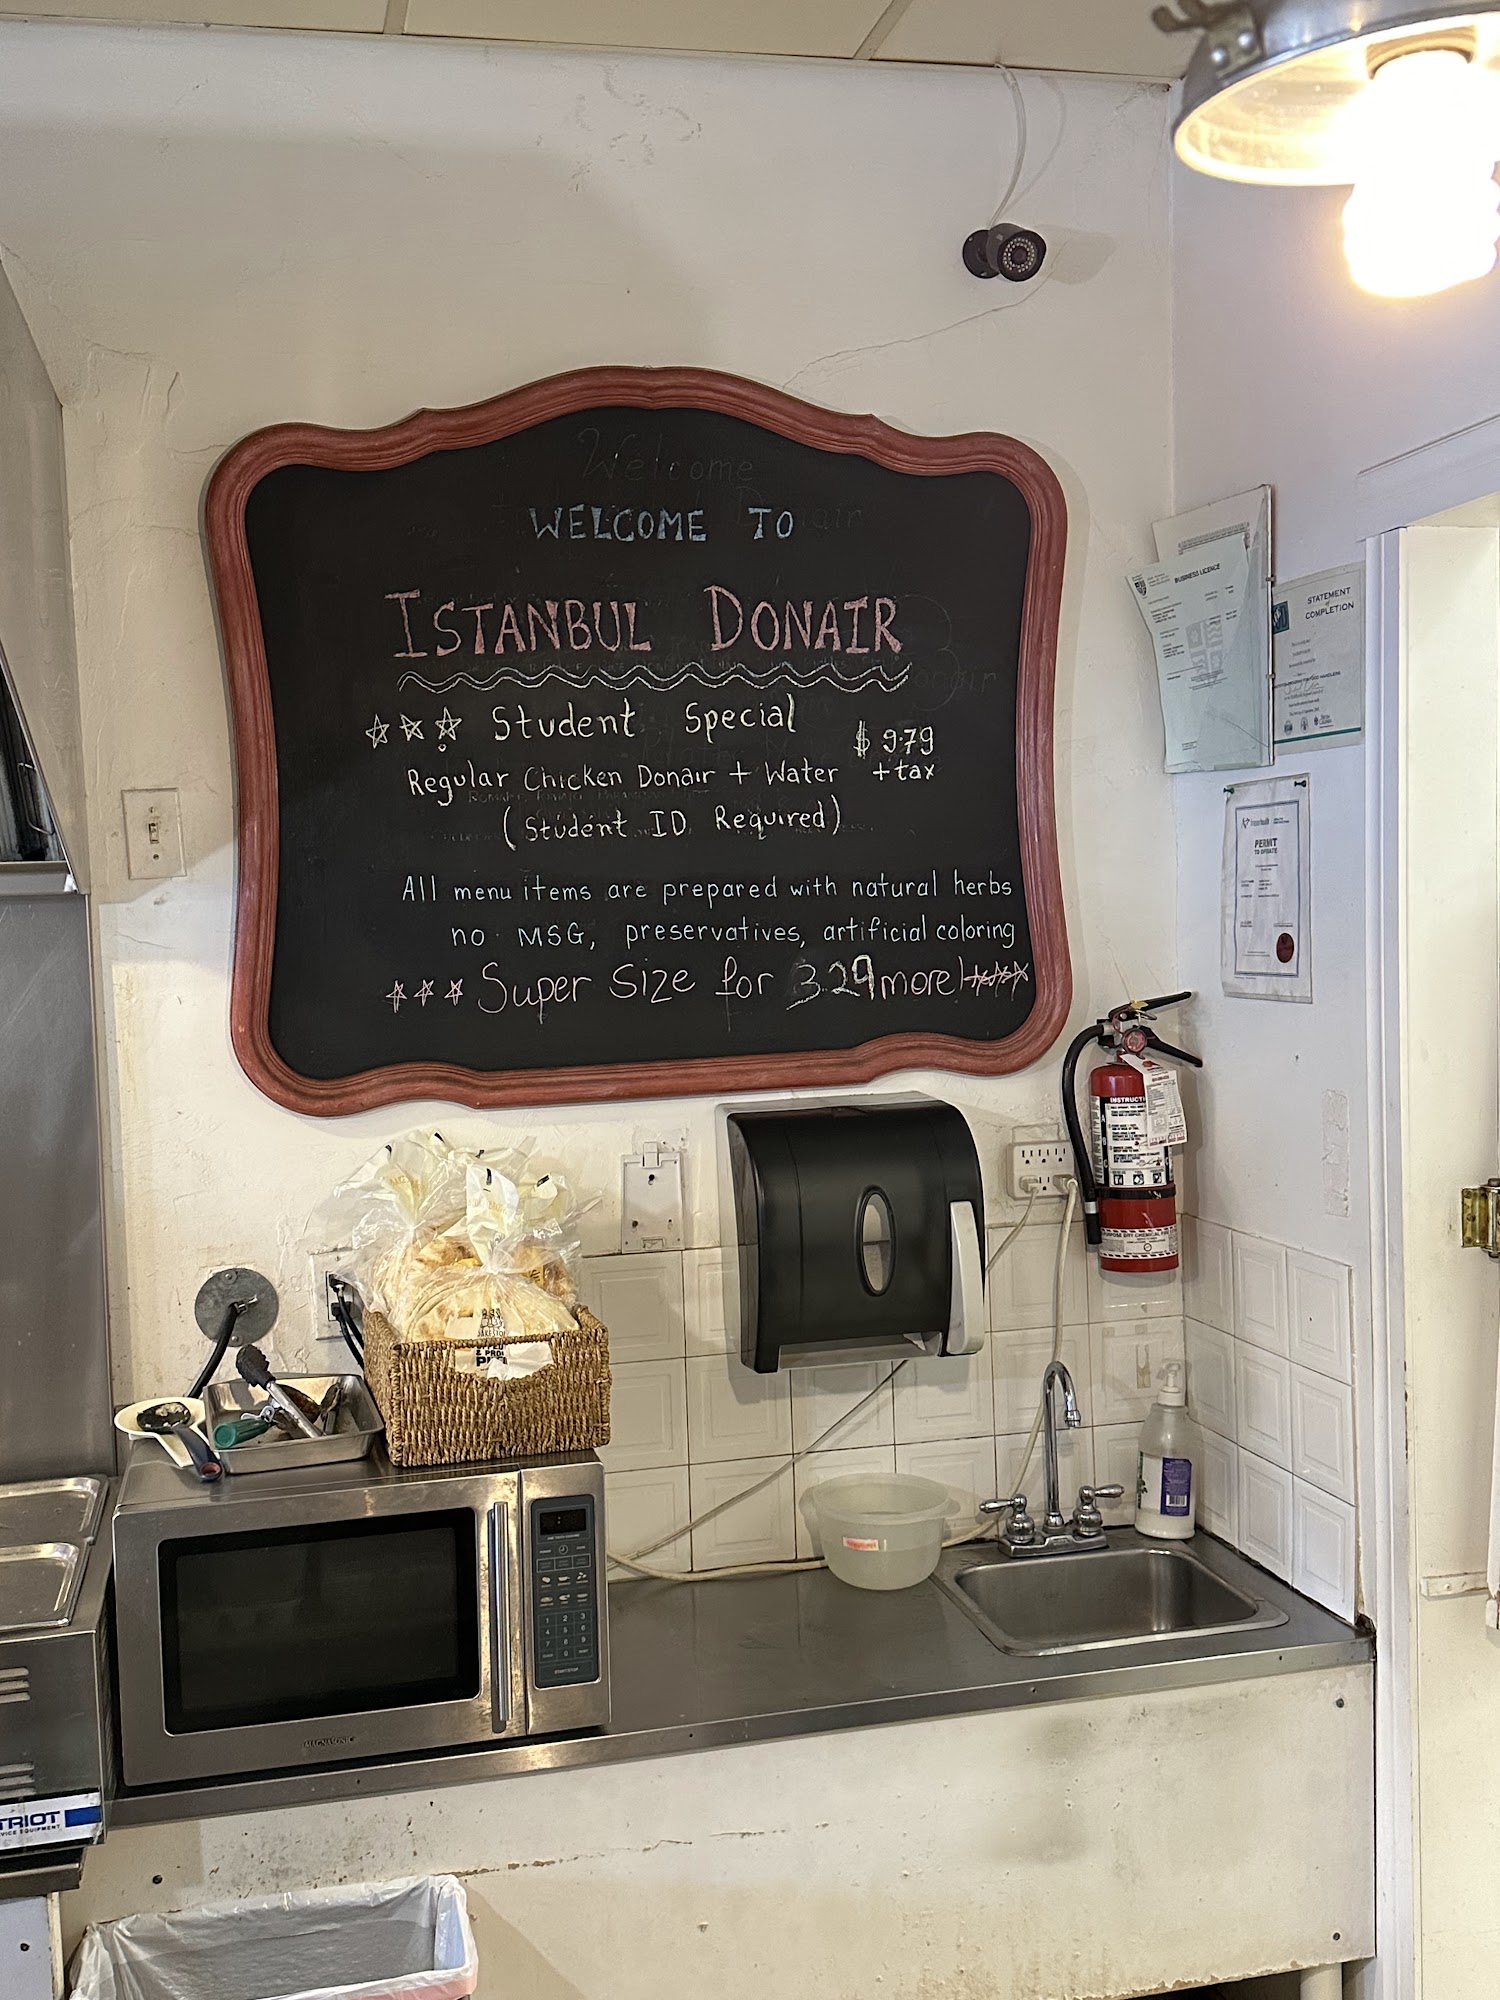 WELCOME TO
ISTANBUL DONAIR
Student Special
$ 9.79
Regular Chicken Donair + Water
+ tax
(Student ID Required)
All menu items are prepared with natural herbs
no MSG, preservatives, artificial coloring
Super Size for 3.29 more!
Welcome
BUSINESS LICENCE
STATEMENT
of
COMPLETION
PERMIT
TO OPERATE
INSTRUCTI
MAGNASONIC
TRIOT
VICE EQUIPMENT